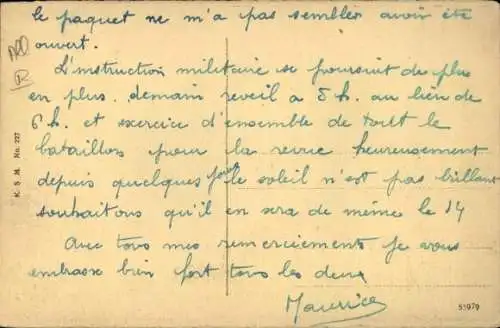 le paquet ne m'a pas sembler avoir été
ouvert.
L'instruction militaire se poursuit de plus
en plus. demain reveil à 5 h. au lieu de
6 h. et exercice d'ensemble de tout le
bataillon pour la revue heureusement
depuis quelques jours le soleil n'est pas brillant
souhaitons qu'il en sera de même le 14
Avec tous mes remerciements je vous
embrasse bien fort tous les deux
Maurice
K. S. M. No. 227
51979